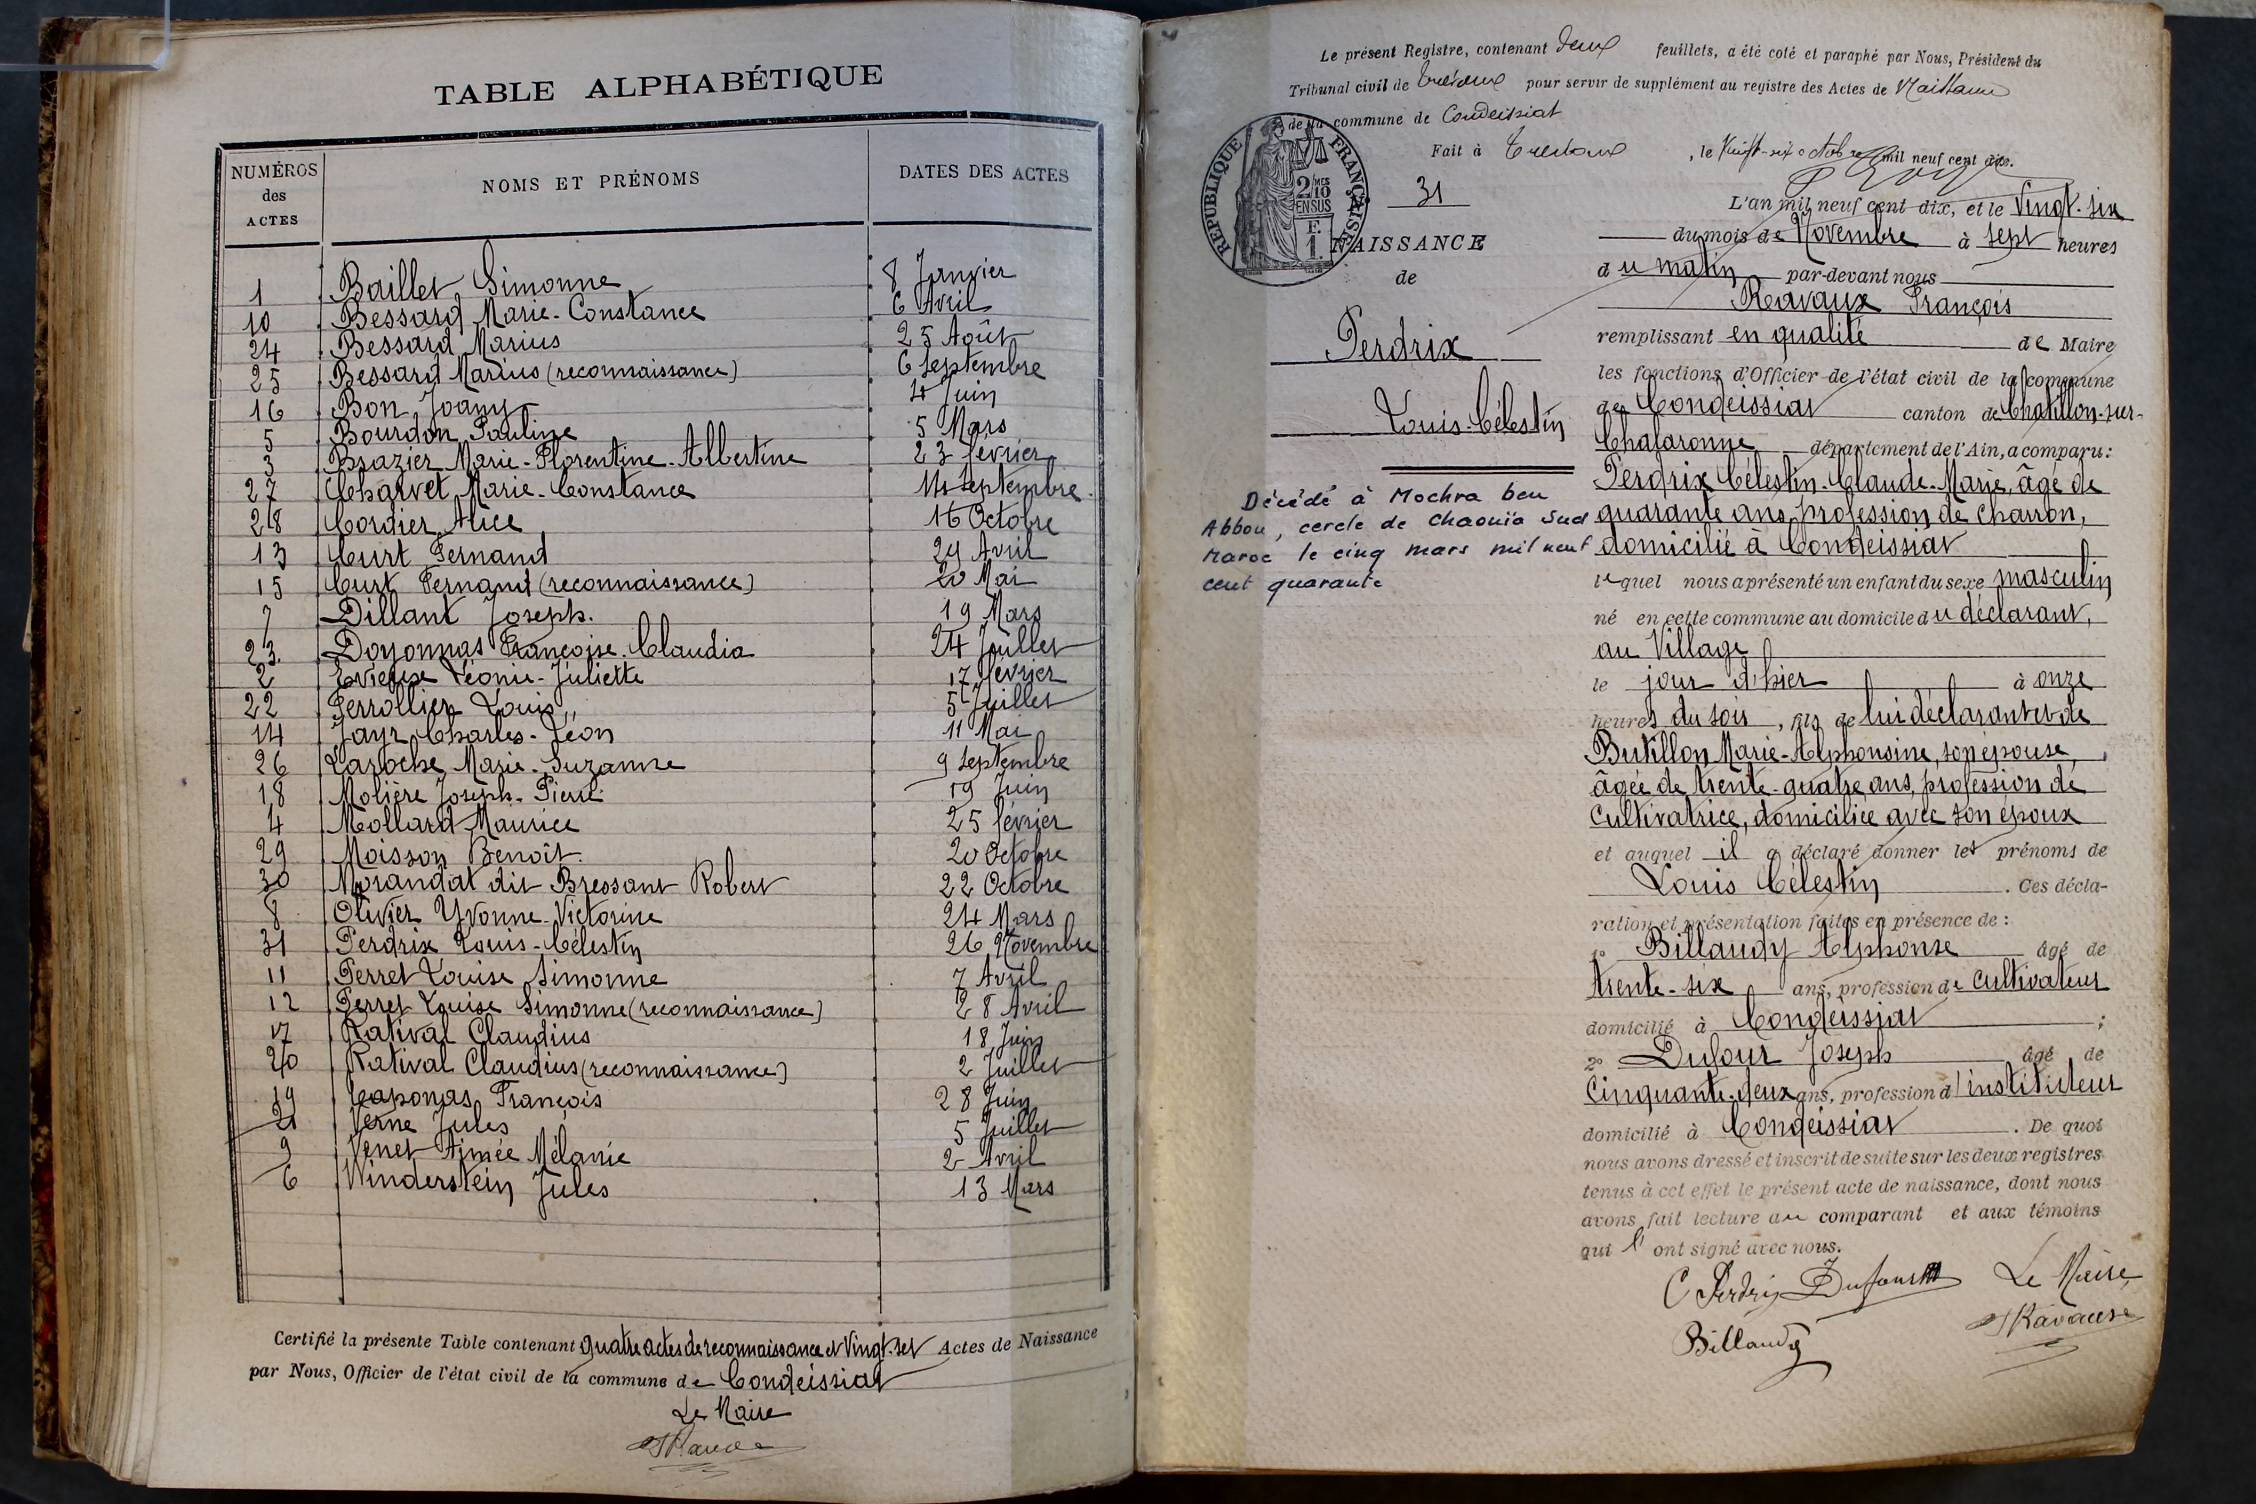 TABLE ALPHABÉTIQUE
NUMÉROS des ACTES NOMS ET PRÉNOMS DATES DES ACTES
1 Baillet Simonne 8 Janvier
10 Bessard Marie-Constance 6 Avril
24 Bessard Marius 25 Août
25 Bessard Marius (reconnaissance) 6 Septembre
16 Bon Joany 4 Juin
5 Bourdon Pauline 5 Mars
3 Brazier Marie-Florentine-Albertine 23 février
27 Charvet Marie-Constance 14 Septembre
28 Cordier Alice 16 Octobre
13 Curt Fernand 29 Avril
15 Curt Fernand (reconnaissance) 20 Mai
7 Dillant Joseph. 19 Mars
23. Doyonnas Françoise Claudia 24 Juillet
2 Évieux Léonie-Juliette 17 février
22 Ferrollier Louis 5 Juillet
14 Jayr Charles-Léon 11 Mai
26 Laroche Marie-Suzanne 9 Septembre
18 Molière Joseph-Pierre 19 Juin
4 Mollard Maurice 25 février
29 Moisson Benoît 20 Octobre
30 Morandat dit Bressant Robert 22 Octobre
8 Olivier Yvonne-Victorine 24 Mars
31 Perdrix Louis-Célestin 26 Novembre
11 Perret Louise Simonne 7 Avril
12 Perret Louise Simonne (reconnaissance) 28 Avril
17 Rativał Claudius 18 Juin
20 Ratival Claudius (reconnaissance) 2 Juillet
19 Taponas François 28 Juin
21 Verne Jules 5 Juillet
9 Venet Aimée Mélanie 2 Avril
6 Winderstein Jules 13 Mars
Certifié la présente Table contenant quatre actes de reconnaissance et Vingt-sept Actes de Naissance
par Nous, Officier de l'état civil de la commune de Condeissiat
Le Maire
Le présent Registre, contenant deux feuillets, a été coté et paraphé par Nous, Président du
Tribunal civil de Trévoux pour servir de supplément au registre des Actes de Naissance
de la commune de Condeissiat
Fait à Trévoux, le Vingt-six octobre mil neuf cent dix.
RÉPUBLIQUE FRANÇAISE
2/10 EN SUS
F. 1.
31
NAISSANCE
de
Perdrix
Louis-Célestin
Décédé à Mochra ben
Abbou, cercle de Chaouïa Sud
Maroc le cinq mars mil neuf
cent quarante
L'an mil neuf cent dix, et le Vingt-six
du mois de Novembre à sept heures
du matin par-devant nous
Ravaux François
remplissant en qualité de Maire
les fonctions d'Officier de l'état civil de la commune
de Condeissiat canton de Chatillon-sur-
Chalaronne département de l'Ain, a comparu:
Perdrix Célestin-Claude-Marie, âgé de
quarante ans, profession de charron,
domicilié à Condeissiat
lequel nous a présenté un enfant du sexe masculin
né en cette commune au domicile du déclarant,
au Village
le jour d'hier à onze
heures du soir, fils de lui déclarant et de
Butillon Marie-Alphonsine, son épouse,
âgée de trente-quatre ans, profession de
Cultivatrice, domiciliée avec son époux
et auquel il a déclaré donner les prénoms de
Louis Célestin. Ces décla-
ration et présentation faites en présence de:
1° Billaudy Alphonse âgé de
trente-six ans, profession de cultivateur
domicilié à Condeissiat;
2° Dufour Joseph âgé de
Cinquante-deux ans, profession d'instituteur
domicilié à Condeissiat. De quoi
nous avons dressé et inscrit de suite sur les deux registres
tenus à cet effet le présent acte de naissance, dont nous
avons fait lecture au comparant et aux témoins
qui l'ont signé avec nous.
C Perdrix Dufour Le Maire,
Billaudy Ravaux